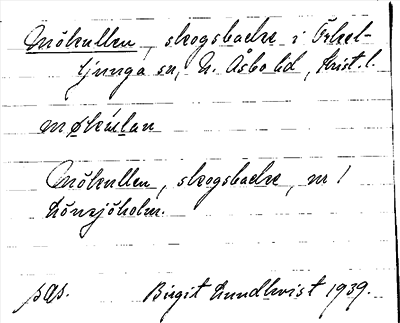 Mökullen, skogsbacke i Örkel-
ljunga sn, N. Åsbo hd, Krist. l.
møkulan
Mökullen, skogsbacke, m 1
Lönsjöholm.
Birgit Lundkvist 1939.